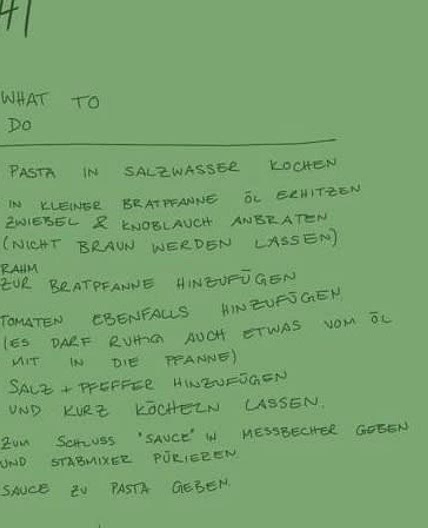 WHAT TO
DO
PASTA IN SALZWASSER KOCHEN
IN KLEINER BRATPFANNE ÖL ERHITZEN
ZWIEBEL & KNOBLAUCH ANBRATEN
(NICHT BRAUN WERDEN LASSEN)
RAHM
ZUR BRATPFANNE HINZUFÜGEN
TOMATEN EBENFALLS HINZUFÜGEN
(ES DARF RUHIG AUCH ETWAS VOM ÖL
MIT IN DIE PFANNE)
SALZ + PFEFFER HINZUFÜGEN
UND KURZ KÖCHELN LASSEN.
ZUM SCHLUSS "SAUCE" IN MESSBECHER GEBEN
UND STABMIXER PÜRIEREN.
SAUCE ZU PASTA GEBEN.